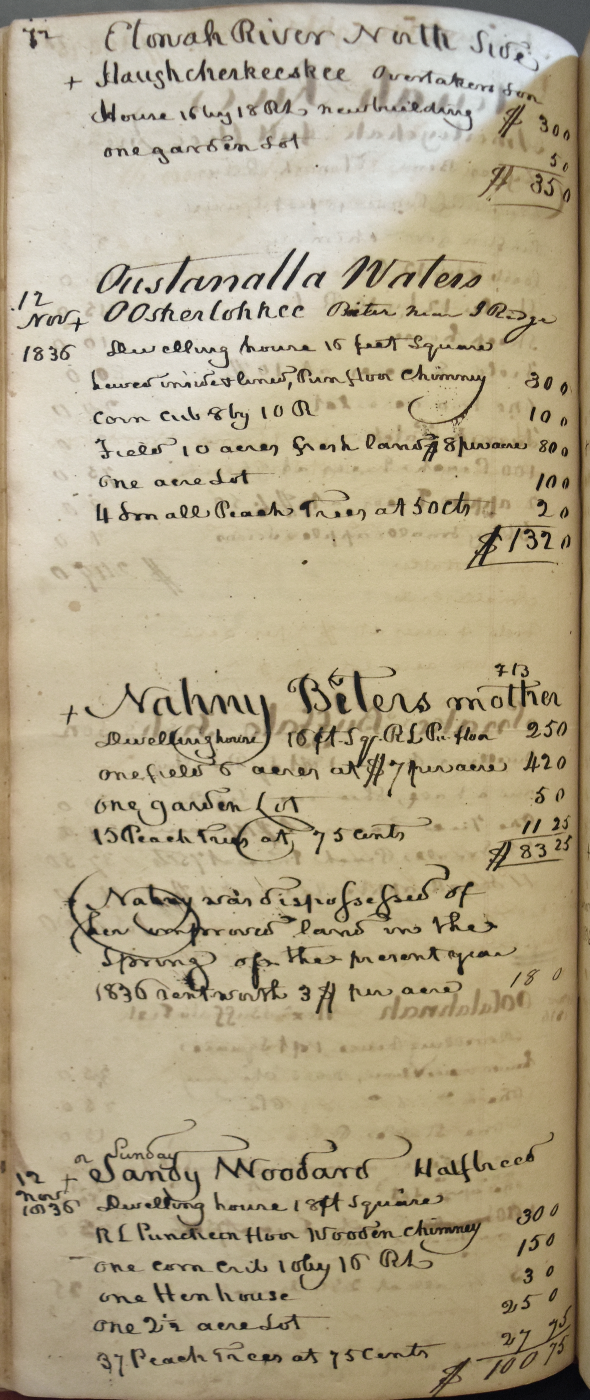 72 Etowah River North Side
+ Haughcherkeeskee Overtakers Son
House 16 by 18 RL newbuilding $ 30 0
one garden Lot 5 0
$ 35 0
Oustanalla Waters
12 Nov 1836 + OOsherlohkee Beter near J Ridge
Dwelling house 16 feet Square
hewed inside & lined, Pun floor Chimney 30 0
Corn crib 8 by 10 R 10 0
Field 10 acres fresh land $8 per acre 80 0
one acre Lot 10 0
4 Small Peach Trees at 50 cts 2 0
$ 132 0
713
+ Nahny Beters mother
Dwelling house 16 ft Sqr RL Pu floor 25 0
one field 6 acres at $7 per acre 42 0
one garden Lot 5 0
15 Peach Trees at 75 Cents 11 25
$ 83 25
Nahny was dispossessed of
her improved land in the
Spring of the present year
1836 rent worth 3$ per acre 18 0
or Sunday
12 Nov 1836 + Sandy Woodard Halfbreed
Dwelling house 18 ft Square
RL Puncheon floor Wooden Chimney 30 0
one corn crib 10 by 16 RL 15 0
one Hen house 3 0
one 2½ acre Lot 25 0
37 Peach Trees at 75 Cents 27 75
$ 100 75